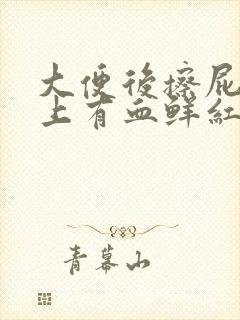 大便後擦屁
上有血鮮紅
青幕山